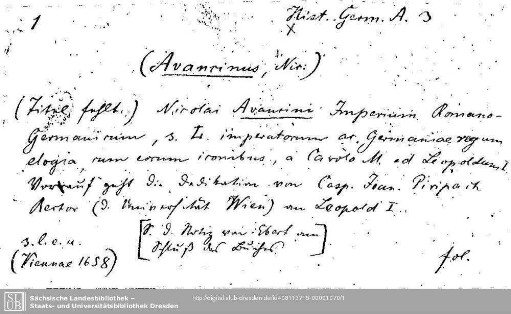 1 Hist. Germ. A. 3
(Avancinus, Nic.)
(Titel fehlt.) Nicolai Avancini Imperium Romano-
Germanicum, s. L. imperatorum ac Germaniae regum
elogia cum eorum iconibus, a Carolo M. ad Leopoldum I.
Vorauf geht die Dedikation von Casp. Joan. Piripach
Rector (d. Universität Wien) an Leopold I.
s. l. e. a. [S. d. Notiz von Ebert am
(Viennae 1658) Schluß des Buches] fol.
Sächsische Landesbibliothek –
Staats- und Universitätsbibliothek Dresden